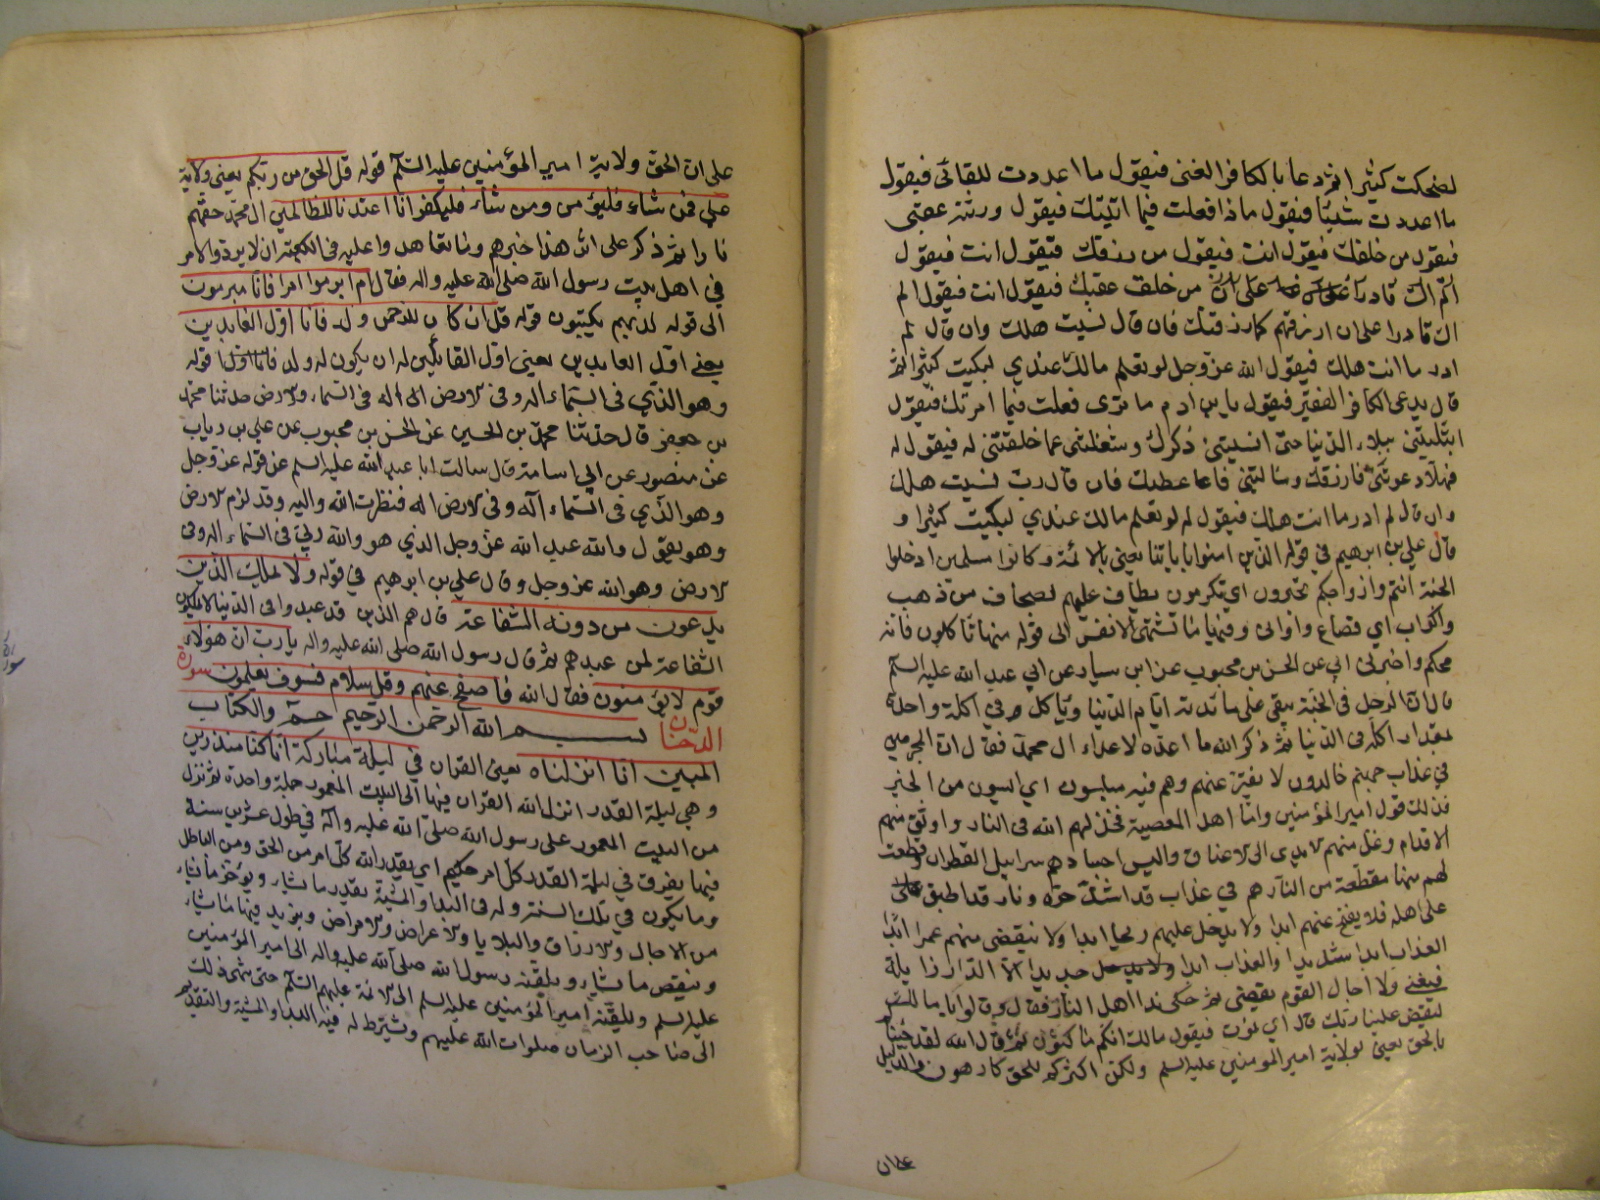 لضحكت كثيرا ثم دعا بالكافر الغنى فيقول ما اعددت للقائى فيقول
ما اعددت شيئا فيقول ماذا فعلت فيما اتيتك فيقول ورثته عقبى
فيقول من خلقك فيقول انت فيقول من رزقك فيقول انت فيقول
من خلق عقبك فيقول انت فيقول الم
اك قادرا على ان ارزقهم كما رزقتك فان قال نسيت هلك وان قال لم
ادر ما انت هلك فيقول الله عز وجل لو تعلم مالك عندي لبكيت كثيرا ثم
قال يدعى الكافر الفقير فيقول يا بن ادم ما ترى فعلت فيما امرتك فيقول
ابتليتنى ببلاء الدنيا حتى انسيتنى ذكرك وشغلتنى عما خلقتنى له فيقول له
فهلا دعوتنى فارزقك وسالتنى فاعطيك فان قال رب نسيت هلك
وان قال لم ادر ما انت هلك فيقول له لو تعلم مالك عندي لبكيت كثيرا و
قال علي بن ابرهيم في قوله الذين امنوا باياتنا يعنى بالائمة وكانوا مسلمين ادخلوا
الجنة انتم وازواجكم تحبرون اي تكرمون يطاف عليهم بصحاف من ذهب
واكواب اي قصاع واوانى وفيها ما تشتهى الانفس الى قوله منها تاكلون فانه
محكم واخبرنى ابي عن الحسن بن محبوب عن ابن سيار عن ابي عبد الله عليه السلم
قال ان الرجل في الجنة يبقى على مائدته ايام الدنيا وياكل في اكلة واحدة
بمقدار اكله في الدنيا ثم ذكر الله ما اعده لاعداء ال محمد فقال ان المجرمين
في عذاب جهنم خالدون لا يفتر عنهم وهم فيه مبلسون اي ايسون من الخير
فذلك قول امير المؤمنين واما اهل المعصية فخذلهم الله في النار واوثق منهم
الاقدام وغل منهم الايدى الى الاعناق والبس اجسادهم سرابيل القطران وقطعت
لهم منها مقطعة من النار هم في عذاب قد اشتد حره ونار قد اطبق
على اهله فلا يفتح عنهم ابدا ولا يدخل عليهم ريحا ابدا ولا ينقضى منهم عمرا ابدا
العذاب ابدا شديد والعذاب ابدا جديد الا الدار زايلة
فيفنى ولا اجال القوم يقضى ثم حكى ندا اهل النار فقال وقالوا يا مالك
ليقض علينا ربك قال اي نموت فيقول مالك انكم ماكثون ثم قال الله لقد جئناكم
بالحق يعنى بولاية امير المؤمنين عليه السلم ولكن اكثركم للحق كارهون والدليل
على ان
على ان الحق ولاية امير المؤمنين عليه السلم قوله قل الحق من ربكم يعنى ولاية
على فمن شاء فليؤمن ومن شاء فليكفر انا اعتدنا للظالمين ال محمد حقهم
نارا ثم ذكر على اثر هذا خبرهم وما تعاهدوا عليه في الكعبة ان لا يردوا الامر
في اهل بيت رسول الله صلى الله عليه واله فقال ام ابرموا امرا فانا مبرمون
الى قوله لديهم يكتبون قوله قل ان كان للرحمن ولد فانا اول العابدين
يعنى اول العابدين يعنى اول القائلين له ان يكون له ولد قوله
وهو الذي في السماء اله وفي الارض اله في السماء والارض حدثنا محمد
بن جعفر قال حدثنا محمد بن الحسين عن الحسن بن محبوب عن علي بن رياب
عن منصور عن ابي اسامة قال سالت ابا عبد الله عليه السلم عن قوله عز وجل
وهو الذي في السماء اله وفي الارض اله فنظرت الله واليه وقد لزم الارض
وهو يقول والله عبد الله عز وجل الذي هو والله ربي في السماء اله وفي
الارض وهو الله عز وجل وقال علي بن ابرهيم في قوله ولا يملك الذين
يدعون من دونه الشفاعة قال هم الذين قد عبدوا في الدنيا لا يملكون
الشفاعة لمن عبدهم ثم قال رسول الله صلى الله عليه واله يا رب ان هؤلاء
قوم لا يؤمنون فقال الله فاصفح عنهم وقل سلام فسوف يعلمون سورة
الدخان بسم الله الرحمن الرحيم حم والكتاب
المبين انا انزلناه يعنى القران في ليلة مباركة انا كنا منذرين
وهي ليلة القدر انزل الله القران فيها الى البيت المعمور جملة واحدة ثم نزل
من البيت المعمور على رسول الله صلى الله عليه واله في طول عشرين سنة
فيها يفرق في ليلة القدر كل امر حكيم اي يقدر الله كل امر من الحق ومن الباطل
وما يكون في تلك السنة وله في البدا والمشية يقدر ما يشاء ويؤخر ما يشاء
من الاجال والارزاق والبلايا والاعراض والامراض ويزيد فيها ما يشاء
وينقص ما يشاء ويلقنه رسول الله صلى الله عليه واله الى امير المؤمنين
عليه السلم ويلقنه امير المؤمنين عليه السلم الى الائمة عليهم السلم حتى ينتهى ذلك
الى صاحب الزمان صلوات الله عليهم ويشترط له فيه البدا والمشية والتقديم